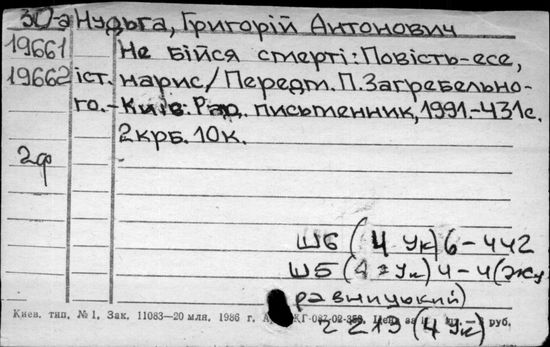 30-а Нудьга, Григорій Антонович
19661 Не бійся смерті: Повість-есе,
19662 іст. нарис/Передм. П. Загребельно-
го.-Київ: Рад. письменник, 1991.-431с.
2крб. 10к.
2ф
Ш6 (4 Ук) 6-442
Ш5 (4 = Ук) 4-4 (Жу
равницький)
Киев. тип. № 1. Зак. 11083—20 млн. 1986 г. руб.
2219 (4 Ук)